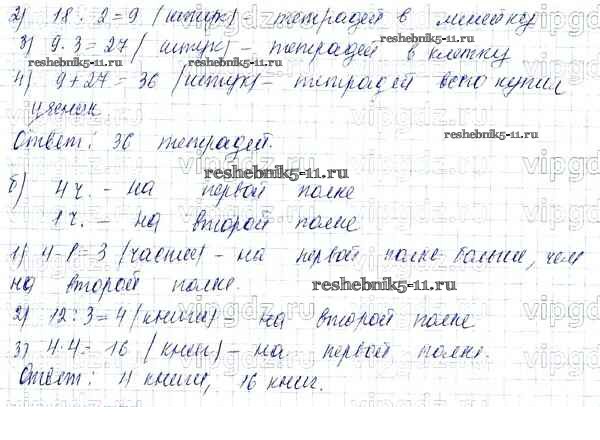 2) 18 : 2 = 9 (штук) - тетрадей в линейку
3) 9 · 3 = 27 (штук) - тетрадей в клетку
reshebnik5-11.ru
reshebnik5-11.ru
4) 9 + 27 = 36 (штук) - тетрадей всего купил
ученик
reshebnik5-11.ru
Ответ: 36 тетрадей.
vipgdz.ru
reshebnik5-11.ru
б) 4 ч. - на первой полке
1 ч. - на второй полке
1) 4 - 1 = 3 (части) - на первой полке больше, чем
на второй полке.
reshebnik5-11.ru
2) 12 : 3 = 4 (книги) - на второй полке
3) 4 · 4 = 16 (книг) - на первой полке.
Ответ: 4 книги, 16 книг.